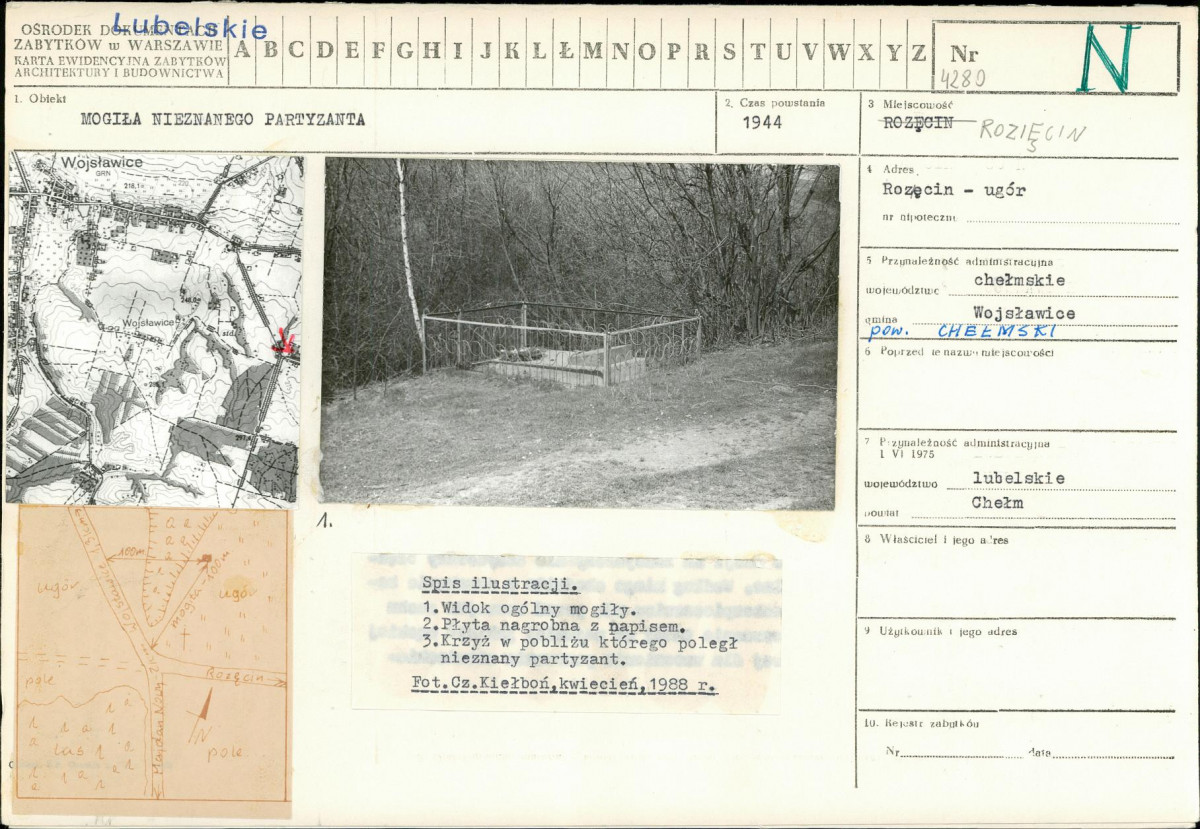 Lubelskie
OŚRODEK DOKUMENTACJI
ZABYTKÓW w WARSZAWIE
KARTA EWIDENCYJNA ZABYTKÓW
ARCHITEKTURY I BUDOWNICTWA
A B C D E F G H I J K L Ł M N O P R S T U V W X Y Z
Nr
4280
N
1. Obiekt
MOGIŁA NIEZNANEGO PARTYZANTA
2. Czas powstania
1944
3 Miejscowość
ROZĘCIN ROZIĘCIN
3
4 Adres
Rozęcin - ugór
nr hipoteczny
5 Przynależność administracyjna
chełmskie
województwo
Wojsławice
gmina
pow. CHEŁMSKI
6 Poprzednie nazwy miejscowości
7 Przynależność administracyjna
1 VI 1975
województwo lubelskie
Chełm
powiat
8 Właściciel i jego adres
9 Użytkownik i jego adres
10. Rejestr zabytków
Nr data
Wojsławice
GRN
218,1
Wojsławice
1.
Spis ilustracji.
1.Widok ogólny mogiły.
2.Płyta nagrobna z napisem.
3.Krzyż w pobliżu którego poległ
nieznany partyzant.
Fot.Cz.Kiełboń,kwiecień,1988 r.
100m
ugór
Wojsławice
mogiła-100m
ugór
pole
Rozęcin
Majdan Nowy
las
N
pole